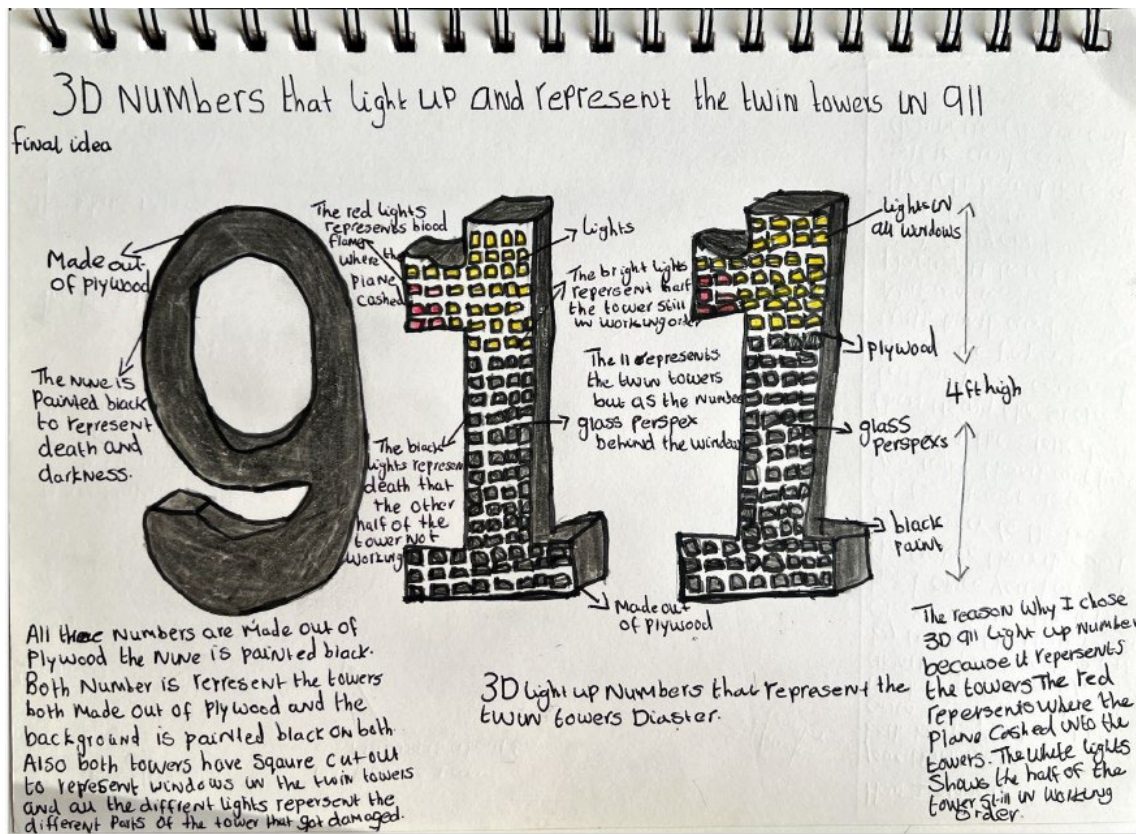 3D NUMBERS that light up and represent the twin towers in 911
final idea
Made out
of plywood
The nine is
painted black
to represent
death and
darkness.
The red lights
represents blood
flames
where the
plane
cashed
lights
The bright lights
repersent half
the tower still
in working order
The 11 represents
the twin towers
but as the number
glass perspex
behind the window
The black
lights represent
death that
the other
half of the
tower not
working
Made out
of plywood
lights in
all windows
plywood
4ft high
glass
perspexs
black
paint
All these Numbers are Made out of
Plywood the nine is painted black.
Both Number is rerresent the towers
both Made out of Plywood and the
background is painted black on both
Also both towers have Sqaure cut out
to repersent windows in the twin towers
and all the diffrent lights repersent the
different Parts of the tower that got damaged.
3D light up Numbers that represent the
twin towers Diaster.
The reason why I chose
3D 911 light up number
because it repersents
the towers The red
repersents where the
plane Cashed into the
towers. The white lights
Shows the half of the
tower still in working
order.